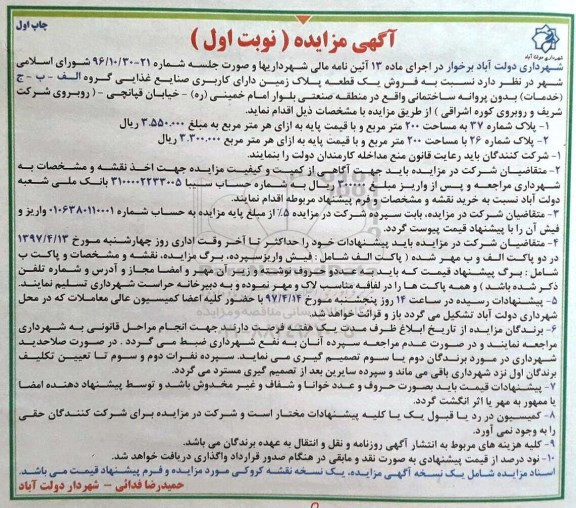 چاپ اول
آگهی مزایده ( نوبت اول )
شهرداری دولت آباد
شهرداری دولت آباد برخوار در اجرای ماده ۱۳ آئین نامه مالی شهرداریها و صورت جلسه شماره ۲۱-۹۶/۱۰/۳۰ شورای اسلامی
شهر در نظر دارد نسبت به فروش یک قطعه پلاک زمین دارای کاربری صنایع غذایی گروه الف - ب - ج
(خدمات) بدون پروانه ساختمانی واقع در منطقه صنعتی بلوار امام خمینی (ره) - خیابان قیانچی - ( روبروی شرکت
شریف و روبروی کوره اشراقی ) از طریق مزایده با مشخصات ذیل اقدام نماید.
۱- پلاک شماره ۳۷ به مساحت ۲۰۰ متر مربع و با قیمت پایه به ازای هر متر مربع به مبلغ ۳.۵۵۰.۰۰۰ ریال
۲- پلاک شماره ۲۶ با مساحت ۲۰۰ متر مربع و با قیمت پایه به ازای هر متر مربع ۳.۳۰۰.۰۰۰ ریال
۱- شرکت کنندگان باید رعایت قانون منع مداخله کارمندان دولت را بنمایند.
۲- متقاضیان شرکت در مزایده باید جهت آگاهی از کمیت و کیفیت مزایده جهت اخذ نقشه و مشخصات به
شهرداری مراجعه و پس از واریز مبلغ ریال به شماره حساب سیبا ۳۱۰۰۰۰۲۲۳۳۰۰۵ بانک ملی شعبه
دولت آباد نسبت به خرید نقشه و مشخصات و فرم پیشنهاد مربوطه اقدام نمایند.
۳- متقاضیان شرکت در مزایده، بابت سپرده شرکت در مزایده ۵٪ از مبلغ پایه مزایده به حساب شماره ۰۱۰۶۳۸۰۱۱۰۰۰۱ واریز و
فیش آن را با پیشنهاد قیمت پیوست گردد.
۴- متقاضیان شرکت در مزایده باید پیشنهادات خود را حداکثر تا آخر وقت اداری روز چهارشنبه مورخ ۱۳۹۷/۴/۱۳
در دو پاکت الف و ب مهر شده ( پاکت الف شامل : فیش واریز سپرده، برگ مزایده، نقشه و مشخصات و پاکت ب
شامل : برگ پیشنهاد قیمت که باید با عدد و حروف نوشته و زیر آن مهر و امضا مجاز و آدرس و شماره تلفن
ذکر شده باشد ) و همه پاکت ها را در لفافه مناسب لاک و مهر نموده و به دبیرخانه حراست شهرداری تسلیم نمایند.
۵- پیشنهادات رسیده در ساعت ۱۴ روز پنجشنبه مورخ ۹۷/۴/۱۴ با حضور کلیه اعضا کمیسیون عالی معاملات که در محل
شهرداری دولت آباد تشکیل می گردد باز و قرائت خواهد شد.
۶- برندگان مزایده از تاریخ ابلاغ ظرف مدت یک هفته فرصت دارند جهت انجام مراحل قانونی به شهرداری
مراجعه نمایند و در صورت عدم مراجعه سپرده آنان به نفع شهرداری ضبط می گردد . در صورت صلاحدید
شهرداری در مورد برندگان دوم یا سوم تصمیم گیری می نماید. سپرده نفرات دوم و سوم تا تعیین تکلیف
برندگان اول نزد شهرداری باقی می ماند و سپرده سایرین بعد از تصمیم گیری مسترد می گردد.
۷- پیشنهادات قیمت باید بصورت حروف و عدد خوانا و شفاف و غیر مخدوش باشد و توسط پیشنهاد دهنده امضا
یا ممهور به مهر یا اثر انگشت گردد.
۸- کمیسیون در رد یا قبول یک یا کلیه پیشنهادات مختار است و شرکت در مزایده برای شرکت کنندگان حقی
را به وجود نمی آورد.
۹- کلیه هزینه های مربوط به انتشار آگهی روزنامه و نقل و انتقال به عهده برندگان می باشد.
۱۰- نود درصد از قیمت پیشنهادی به صورت نقد و مابقی در هنگام صدور قرارداد واگذاری دریافت خواهد شد.
اسناد مزایده شامل یک نسخه آگهی مزایده، یک نسخه نقشه کروکی مورد مزایده و فرم پیشنهاد قیمت می باشد.
حمیدرضا فدائی - شهردار دولت آباد